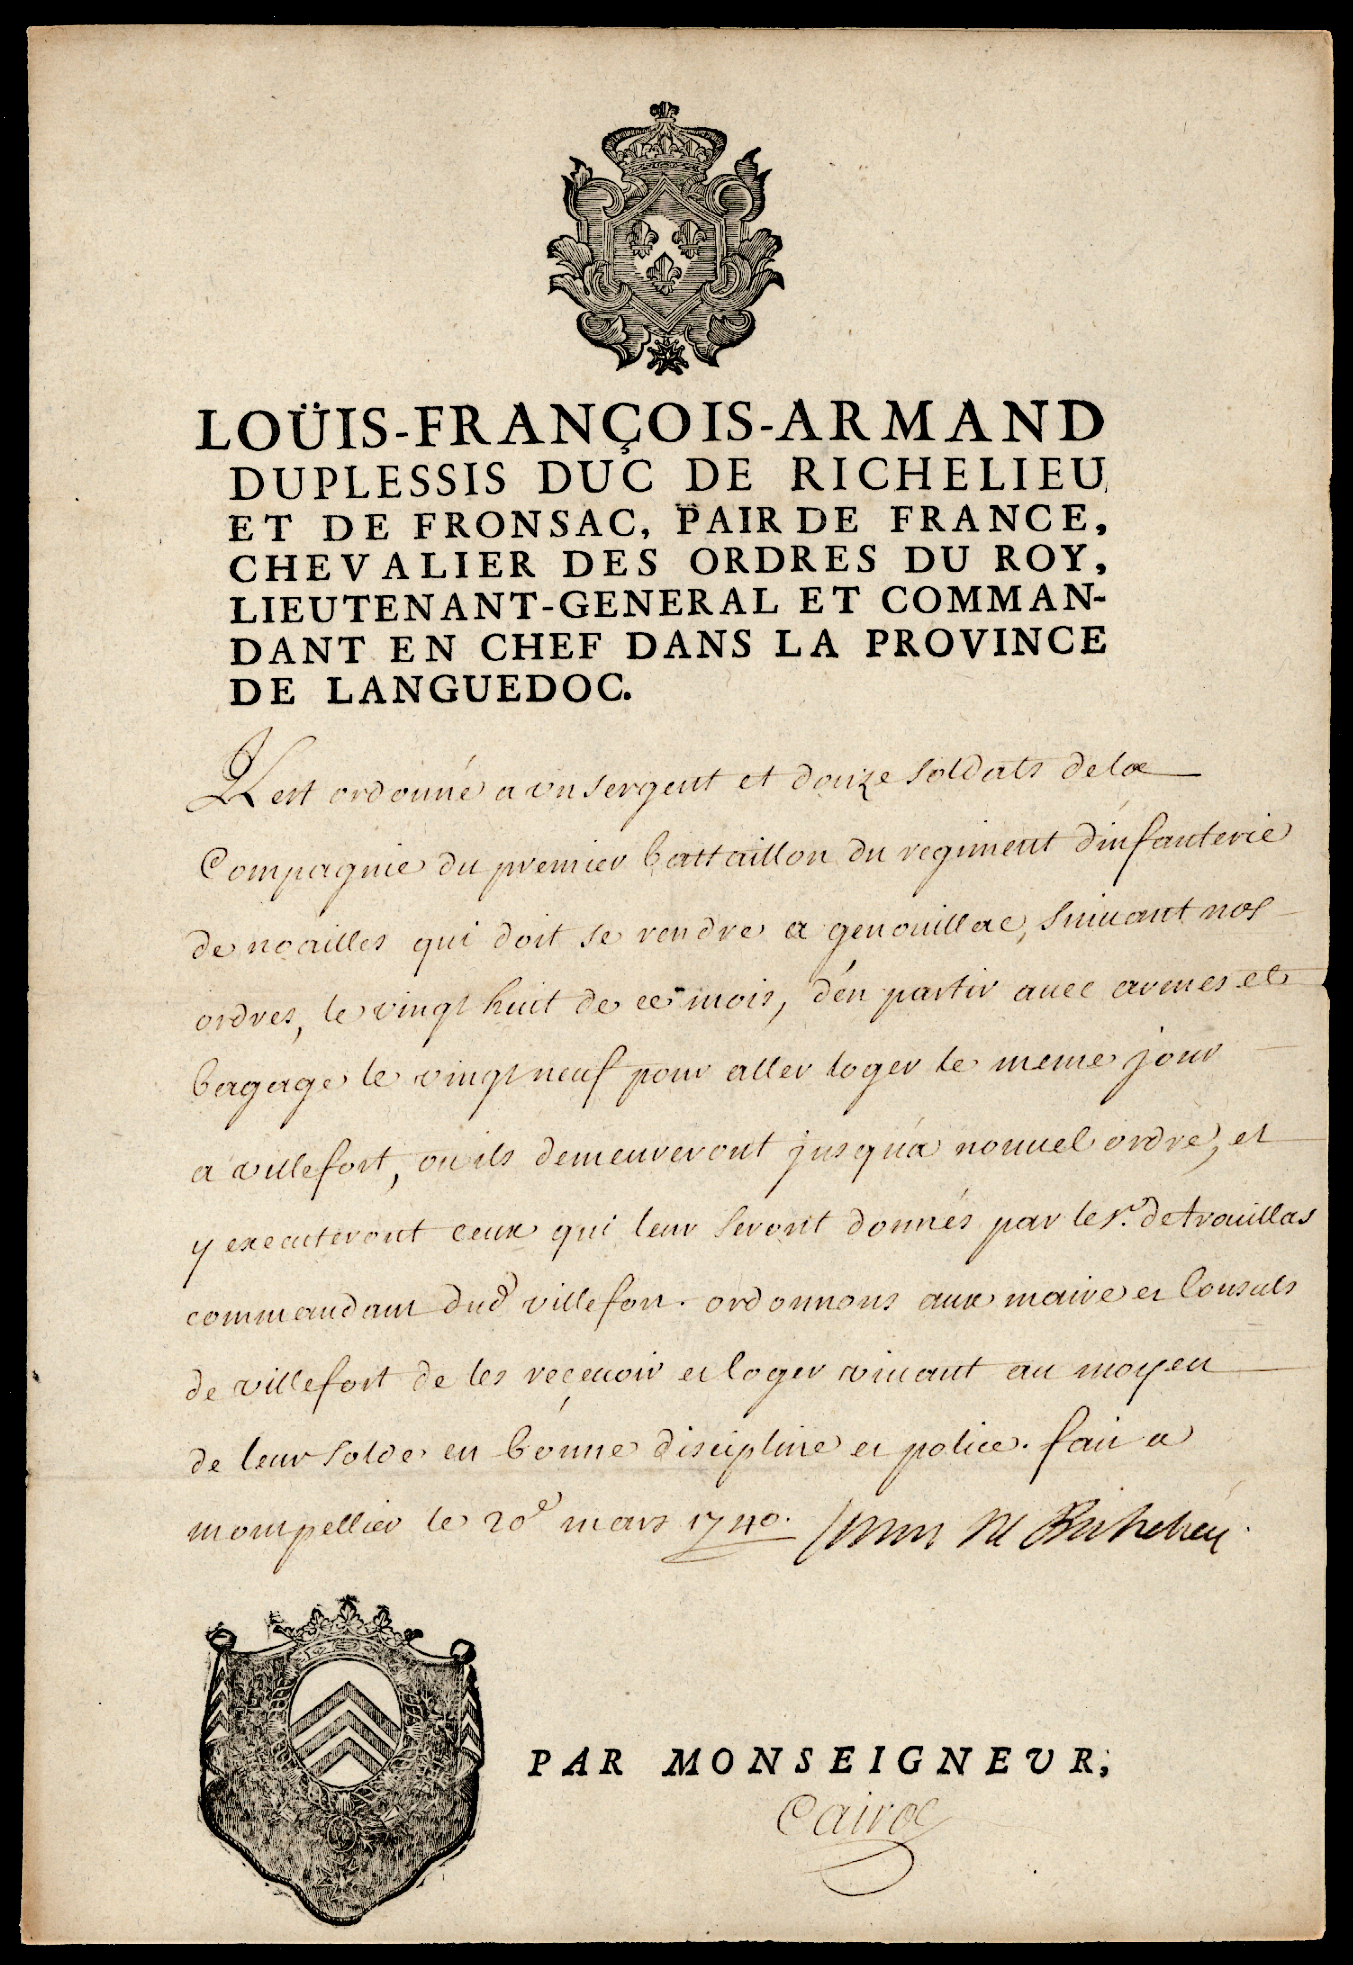 LOÜIS-FRANÇOIS-ARMAND
DUPLESSIS DUC DE RICHELIEU,
ET DE FRONSAC, PAIR DE FRANCE,
CHEVALIER DES ORDRES DU ROY,
LIEUTENANT-GENERAL ET COMMAN-
DANT EN CHEF DANS LA PROVINCE
DE LANGUEDOC.
Il est ordonné a un sergent et douze soldats de la
Compagnie du premier battaillon du regiment d'infanterie
de noailles qui doit se rendre a genouillac, suiuant nos
ordres, le vingt huit de ce mois, d'en partir auec armes et
bagage le vingt neuf pour aller loger le meme jour
a villefort, ou ils demeureront jusqu'a nouuel ordre, et
y executeront ceux qui leur seront donnés par le sr. de trouillas
commandant dud villefort. ordonnons aux maire et Consuls
de villefort de les reçeuoir et loger viuant au moyen
de leur solde en bonne discipline et police. fait a
montpellier le 20e mars 1740. Richelieu
PAR MONSEIGNEUR,
Cairoc